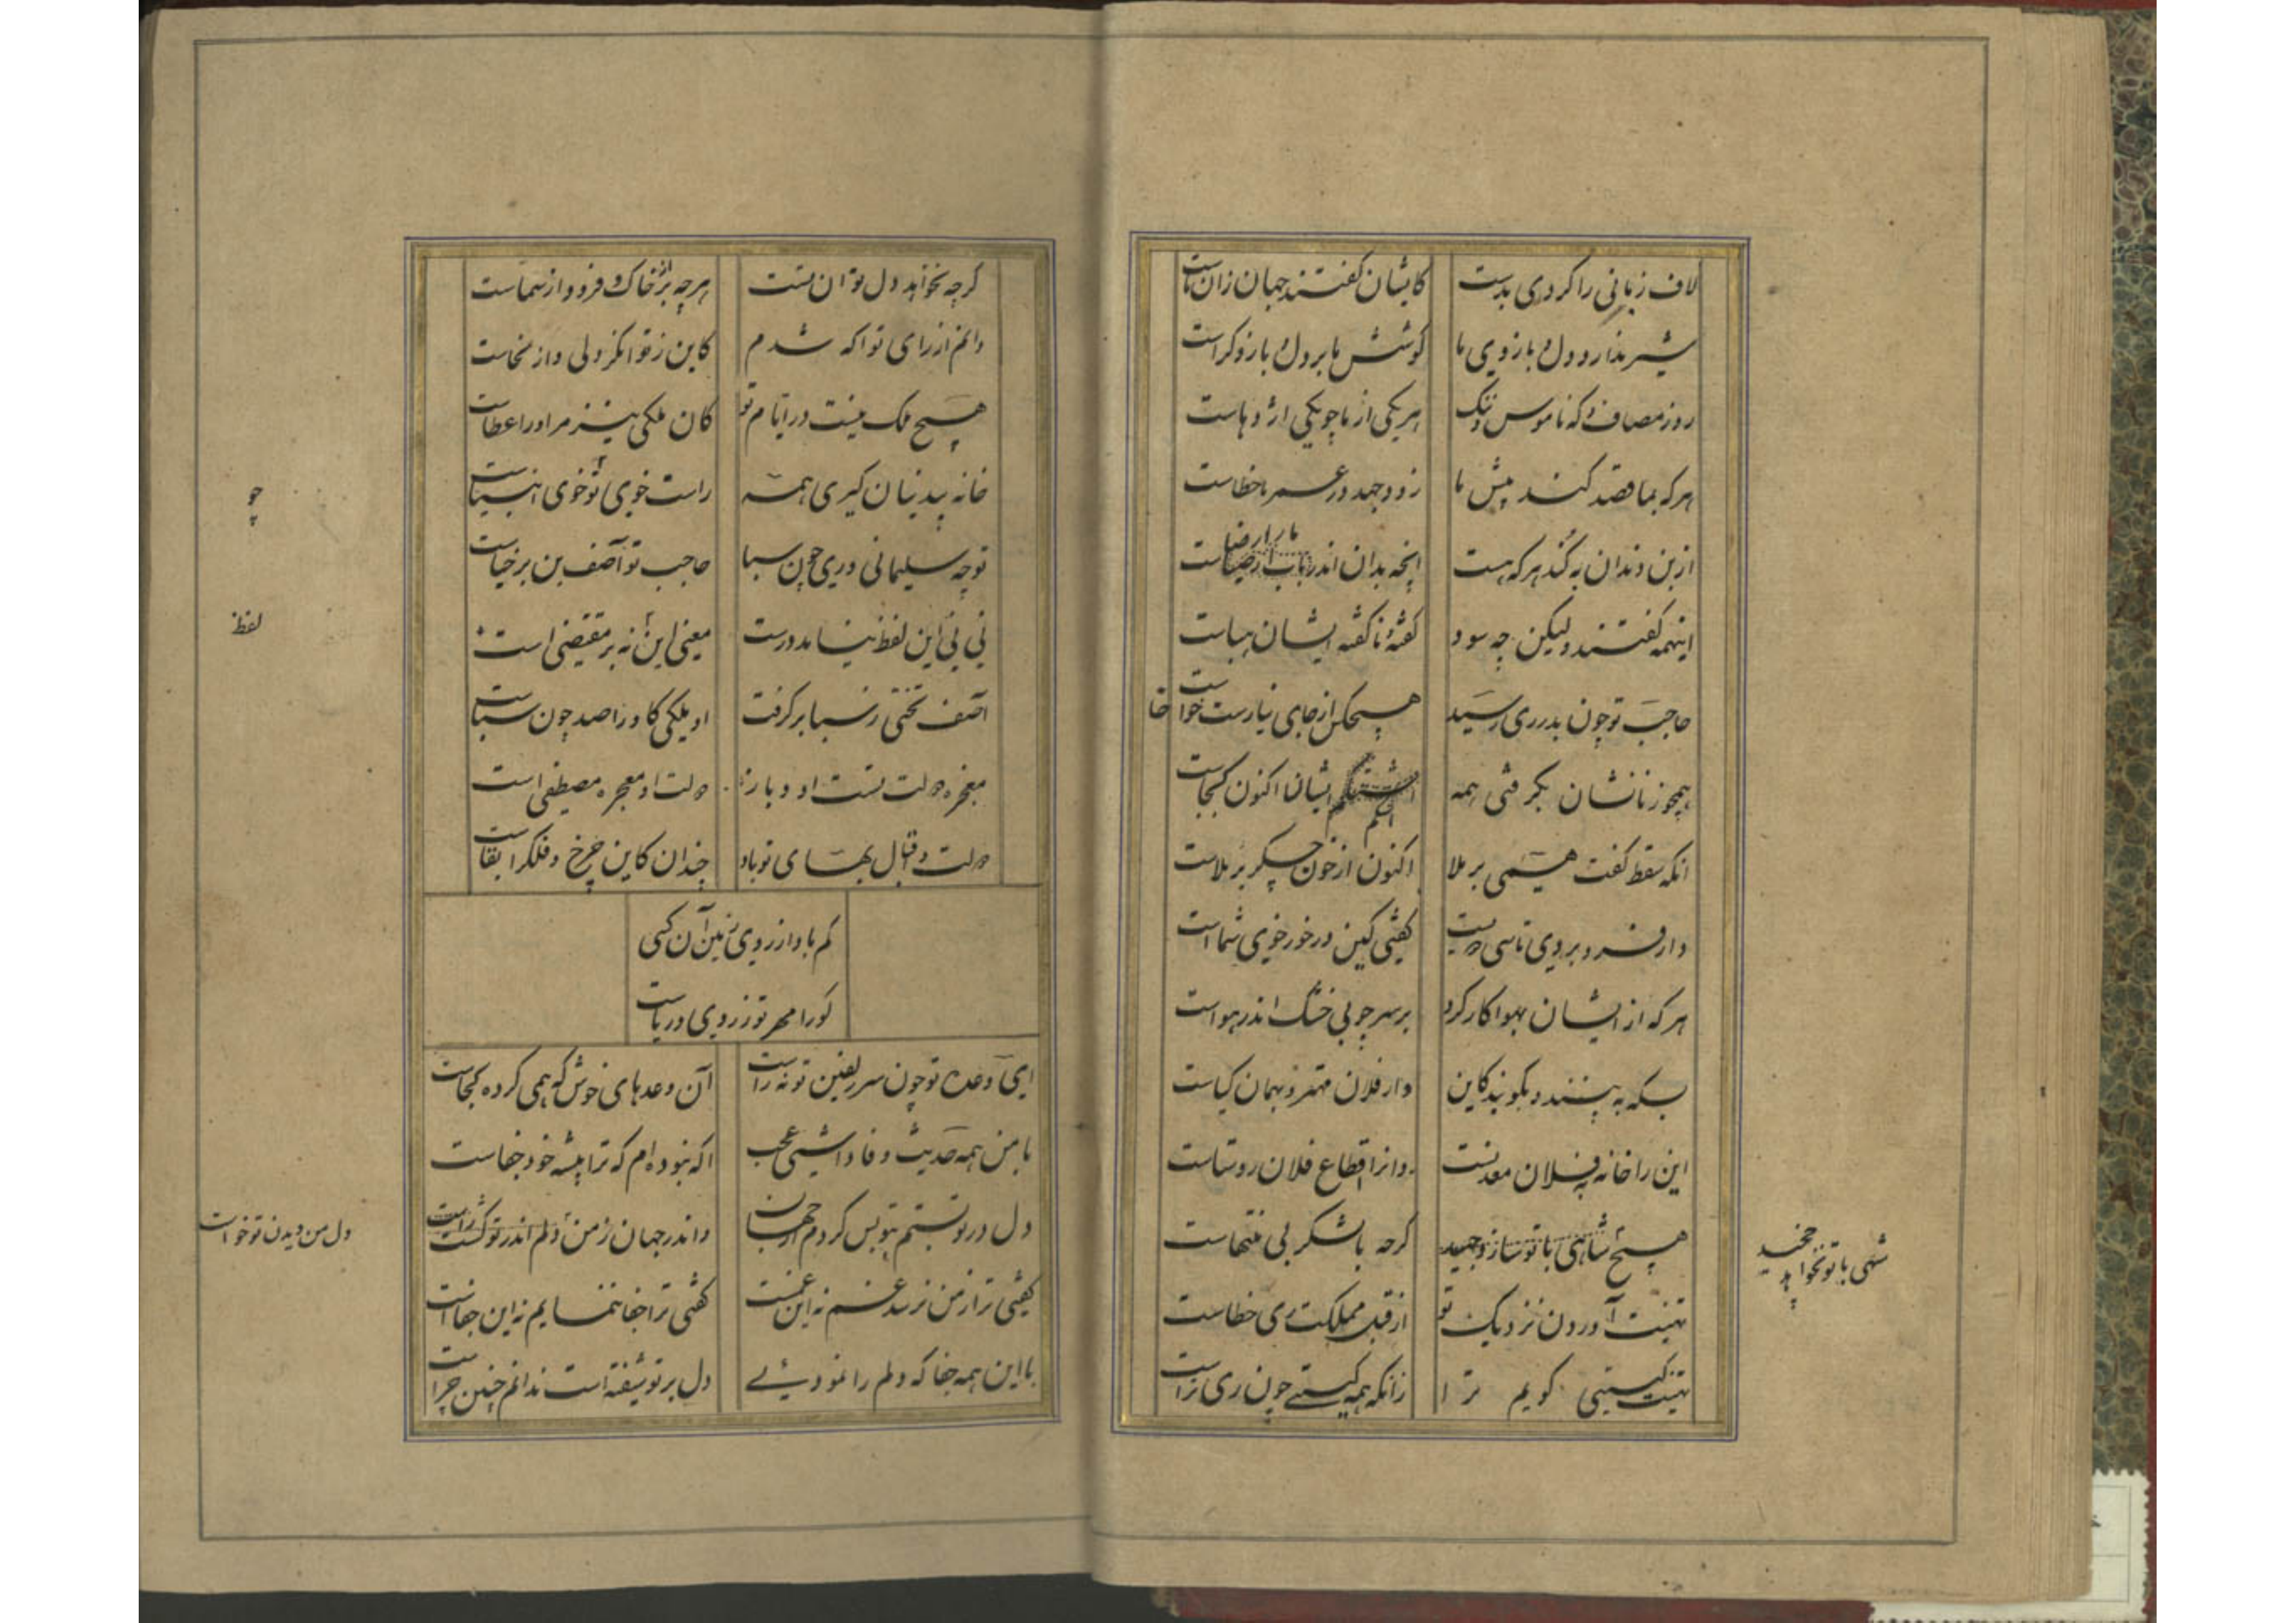 لاف زنانی را کردی بدست کایشان گفتند جهان زان ماست
شیر ندارد دل و بازوی ما کوشش ما بر دل و بازو گواست
روز مصاف و که ناموس و ننگ هر یکی از ما چو یکی اژدهاست
هر که بما قصد کند پیش ما زود جهد در عسر ما خطاست
از بن دندان بکند هر که هست انچه بدان اندر ما را رضاست
اینهمه گفتند ولیکن چه سود گفته و ناکفته ایشان هباست
حاجب تو چون بدر ری رسید هیچکس از جای نیارست خاست
همچو زنانشان بگرفتی همه ایشان اکنون کجاست
انکه سقط گفت همی بر ملا اکنون از خون جگر بر ملاست
دار فرو بردی تاسی دویست گفتی کین درخور خوی شماست
هر که از ایشان بهوا کار کرد بر سر چوبی خشک اندر هواست
بسکه به بینند و بگویند کاین دار فلان مهتر و بهمان کیاست
این را خانه بفلان معدنست وانرا اقطاع فلان روستاست
هیچ شاهی با تو سازد جهید گرچه با لشکر بی منتهاست
شهی با تو نخواهد چخید
تهنیت آوردن نزدیک تو از قبل مملکت ری خطاست
تهنیت گیتی گویم ترا زانکه همه گیتی چون ری تراست
گرچه نخواهد دل تو آن تست هر چه بر از خاک و فرود از سماست
دانم از رای تو اگه شدم کاین ز تو انکر دلی و از سخاست
هیچ ملک نیست در ایام تو کان ملکی نیز مر او را عطاست
خانه بیدینان گیری همه راست خوی تو خوی انبیاست
چو
تو چه سلیمانی و ری چون سبا حاجب تو آصف بن برخیاست
نی نی این لفظ نیامد درست معنی این نه بر مقتضی است
لفظ
آصف تختی ز سبا بر گرفت او ملکی کاو را صد چون سباست
معجزه دولت تست او و باز دولت او معجزه مصطفی است
دولت و اقبال بقای تو باد چندان کاین چرخ و فلک را بقاست
کم باد از روی زمین آن کسی
کو را مهر تو ز روی و ریاست
ای وعده تو چون سر زلفین تو نه راست آن وعدهای خوش که همی کرده کجاست
با من همه حدیث وفا داشتی عجب اگه نبوده ام که ترا پیشه خود جفاست
دل در تو بستم و بتو بس کردم از جهان واندر جهان ز من دلم اندر تو گشت راست
دل من دیدن تو خواست
گفتی ترا از من نرسد غم نه این غمست گفتی ترا جفا ننمایم نه این جفاست
با این همه جفا که دلم را نمودئی دل بر تو شیفته است ندانم چنین چراست